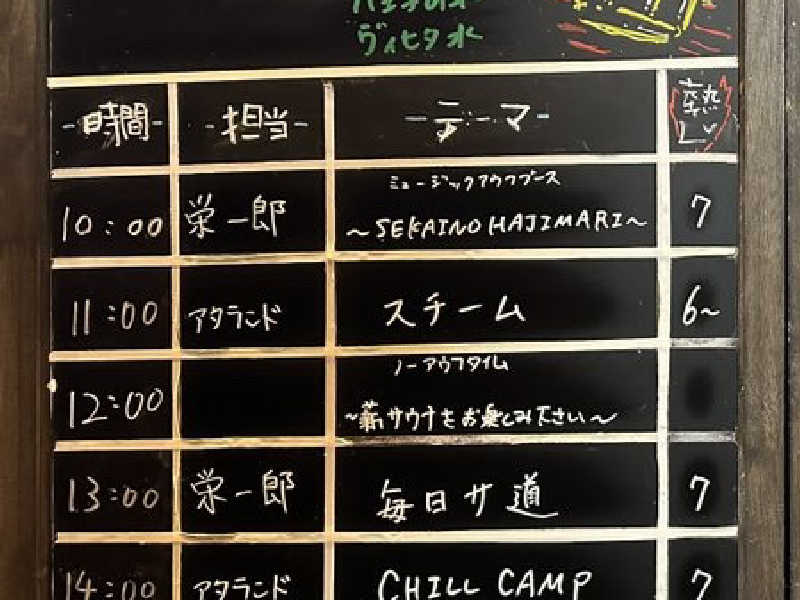 ヴィヒタ水
-時間- -担当- -テーマ- 熱し
ミュージックアウフグース
10:00 栄一郎 ~SEKAINO HAJIMARI~ 7
11:00 アタランド スチーム 6~
ノーアウフタイム
12:00 ~薪サウナをお楽しみ下さい~
13:00 栄一郎 毎日サ道 7
14:00 アタランド CHILL CAMP 7